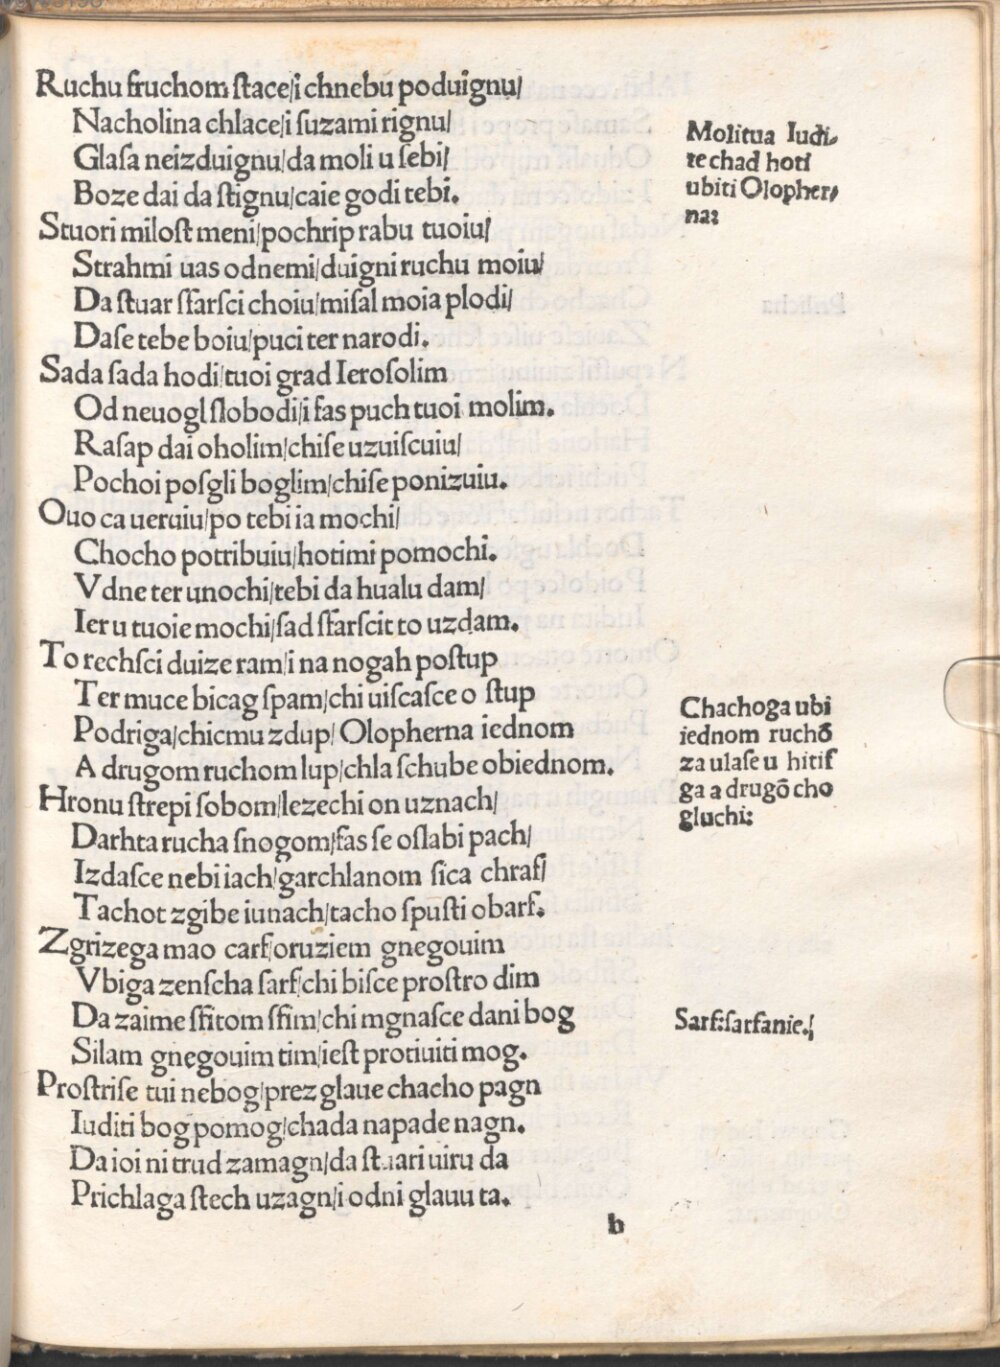 Ruchu ſruchom ſtace/i chnebu poduignu/
Nacholina chlace/i ſuzami rignu/
Glaſa neizduignu/da moli u ſebi/
Boze dai da ſtignu/caie godi tebi.
Stuori miloſt meni/pochrip rabu tuoiu/
Strahmi uas odnemi/duigni ruchu moiu/
Da ſtuar ſfarſci choiu/miſal moia plodi/
Daſe tebe boiu/puci ter narodi.
Sada ſada hodi/tuoi grad Ieroſolim
Od neuogl ſlobodi/i ſas puch tuoi molim.
Raſap dai oholim/chiſe uzuiſcuiu/
Pochoi poſgli boglim/chiſe ponizuiu.
Ouo ca ueruiu/po tebi ia mochi/
Chocho potribuiu/hotimi pomochi.
Vdne ter unochi/tebi da hualu dam/
Ier u tuoie mochi/ſad ſfarſcit to uzdam.
To rechſci duize ram/i na nogah poſtup
Ter muce bicag ſpam/chi uiſcaſce o ſtup
Podriga/chicmu zdup/Olopherna iednom
A drugom ruchom lup/chla ſchube obiednom.
Hronu ſtrepi ſobom/lezechi on uznach/
Darhta rucha ſnogom/ſas ſe oſlabi pach/
Izdaſce nebi iach/garchlanom ſica chraſ/
Tachot zgibe iunach/tacho ſpuſti obarſ.
Zgrizega mao carſ/oruziem gnegouim
Vbiga zenſcha ſarſ/chi biſce proſtro dim
Da zaime ſfitom ſfim/chi mgnaſce dani bog
Silam gnegouim tim/ieſt protiuiti mog.
Proſtriſe tui nebog/prez glaue chacho pagn
Iuditi bog pomog/chada napade nagn.
Da ioi ni trud zamagn/da ſtuari uiru da
Prichlaga ſtech uzagn/i odni glauu ta.
b
Molitua Iudi-
te chad hoti
ubiti Olopher-
na:
Chachoga ubi
iednom ruchõ
za ulaſe u hitiſ
ga a drugõ cho
gluchi:
Sarſ:ſarſanie./